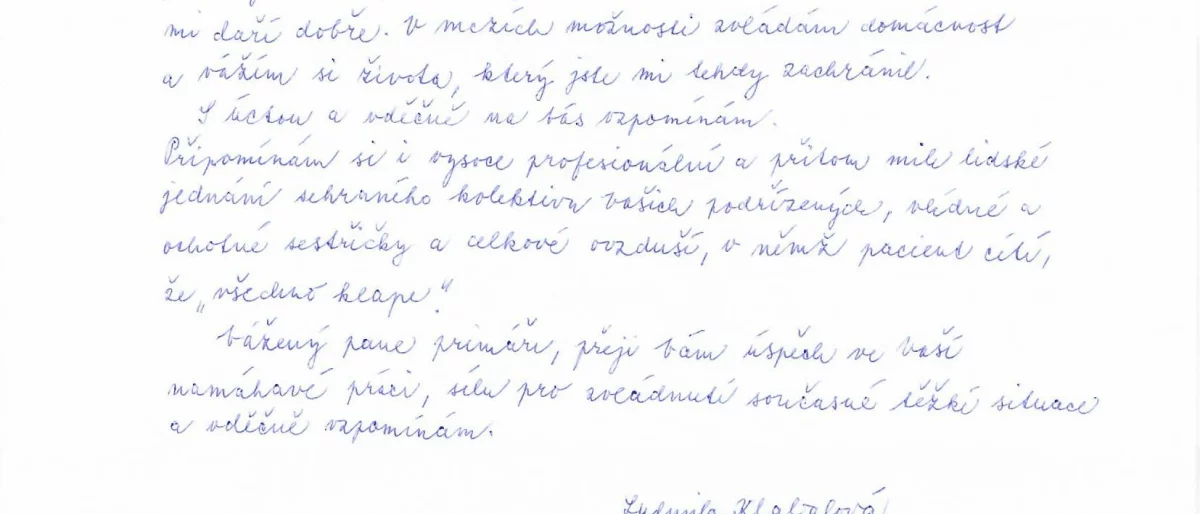 mi daří dobře. V mezích možnosti zvládám domácnost
a vážím si života, který jste mi tehdy zachránil.
S úctou a vděčně na Vás vzpomínám.
Připomínám si i vysoce profesionální a přitom mile lidské
jednání sehraného kolektivu Vašich podřízených, vlídné a
ochotné sestřičky a celkové ovzduší, v němž pacient cítí,
že „všechno klape".
Vážený pane primáři, přeji Vám úspěch ve Vaší
namáhavé práci, sílu pro zvládnutí současné těžké situace
a vděčně vzpomínám.
Ludmila